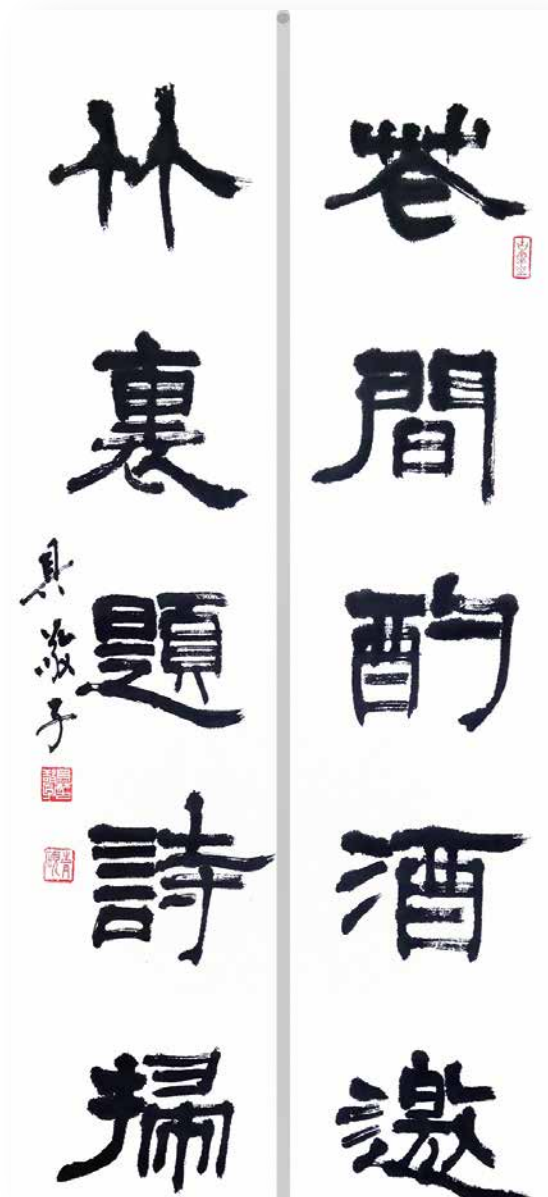 花間酌酒邀
竹裏題詩掃
具敬子